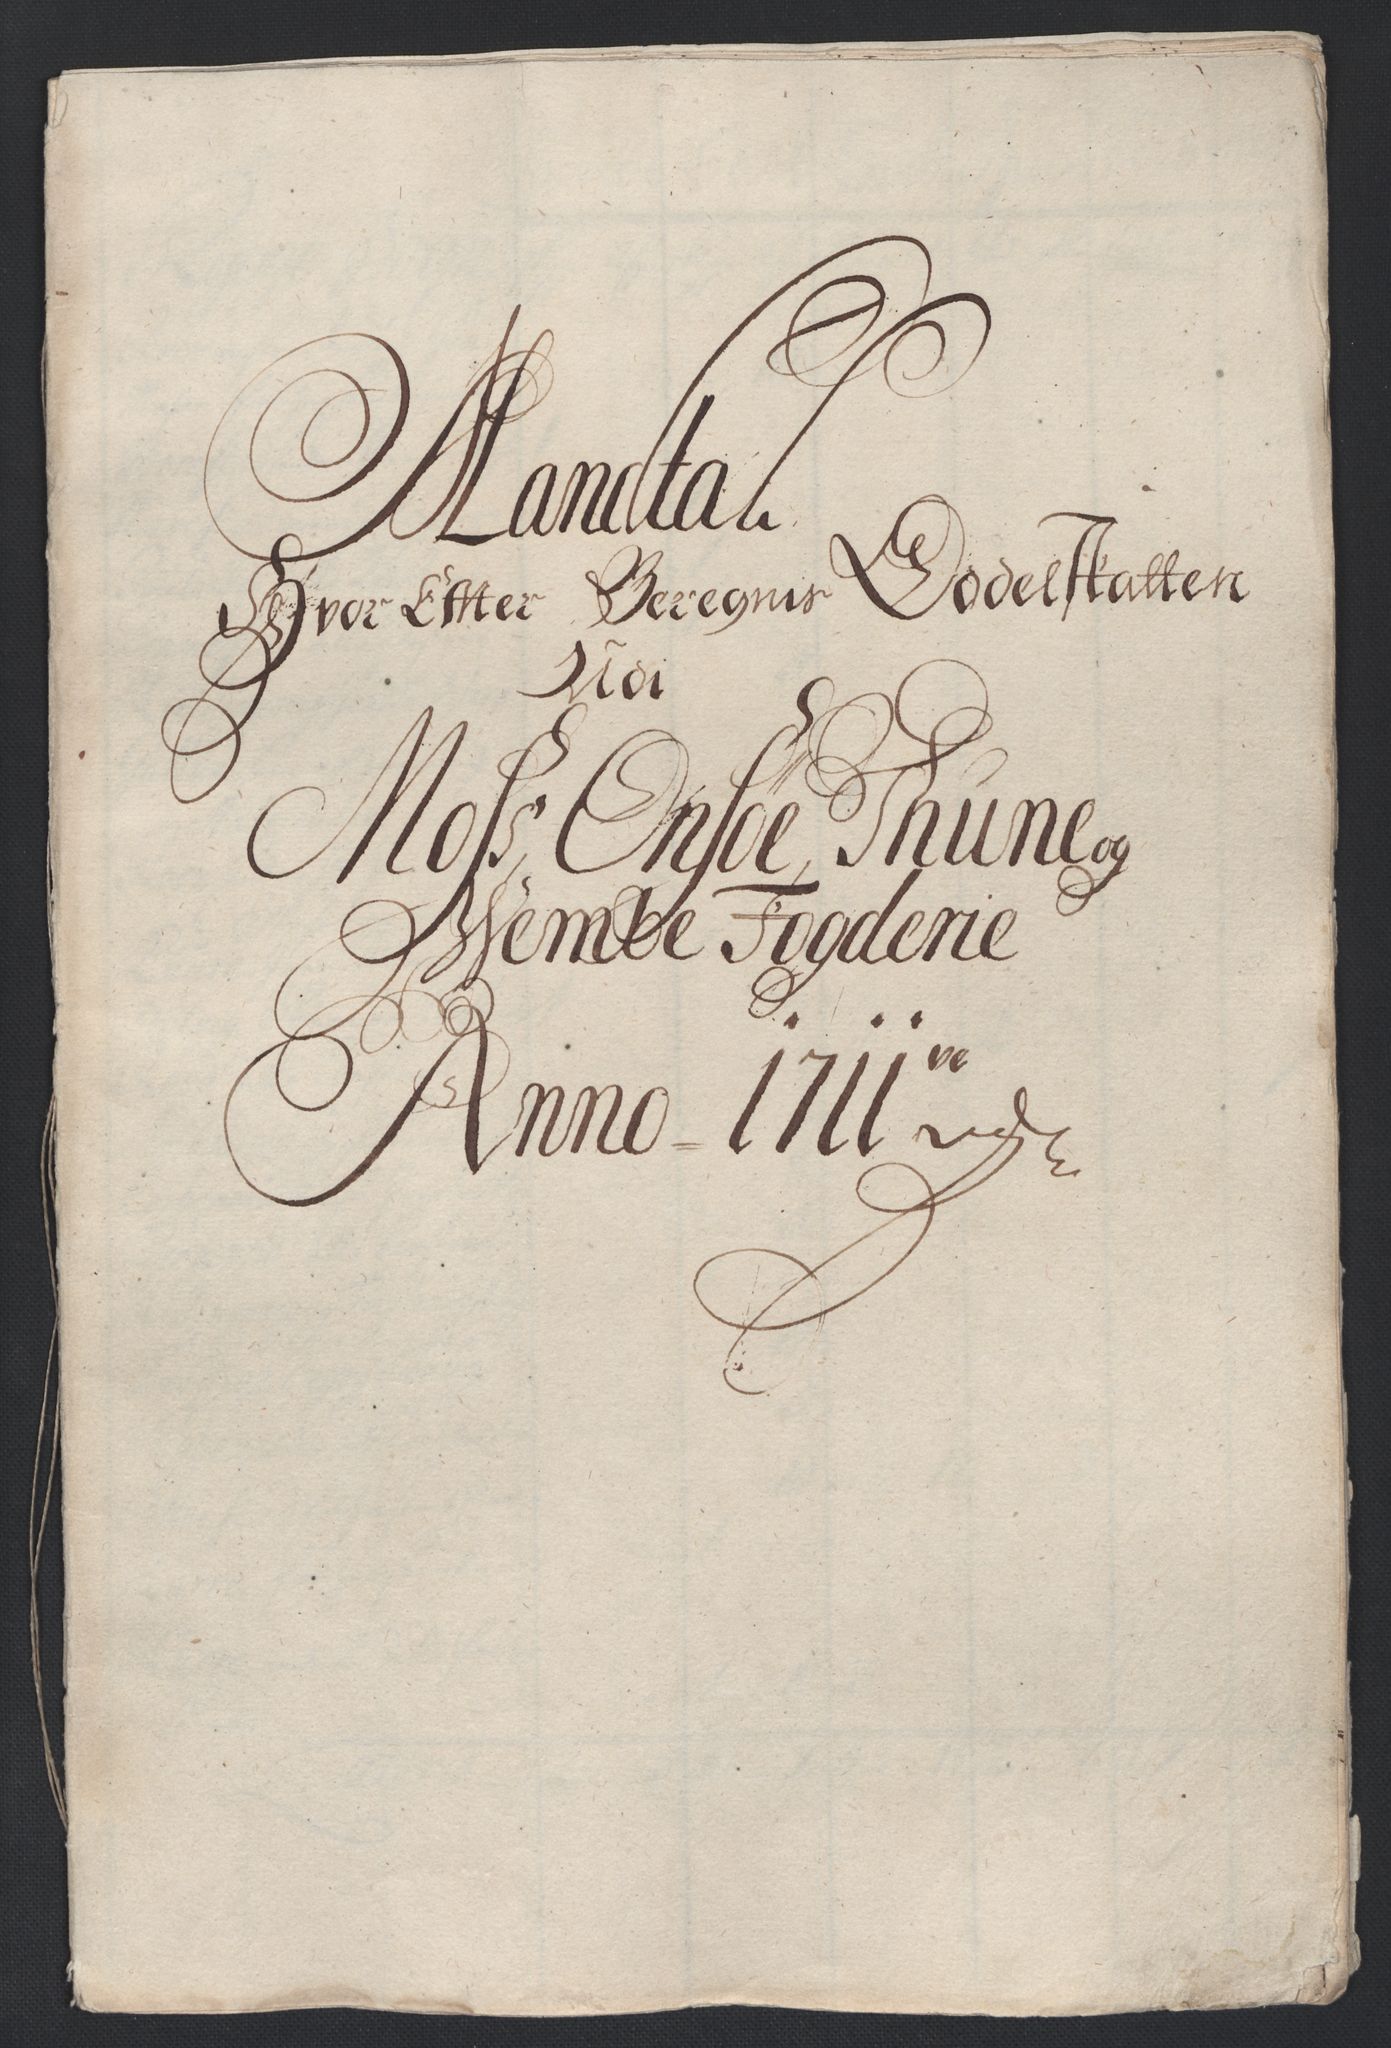 Mandtal
Hvor Effter Beregnis Oodelskatten
Udi
Moss, Onsöe, Thune og
Wembe Fogderie
Anno = 1711